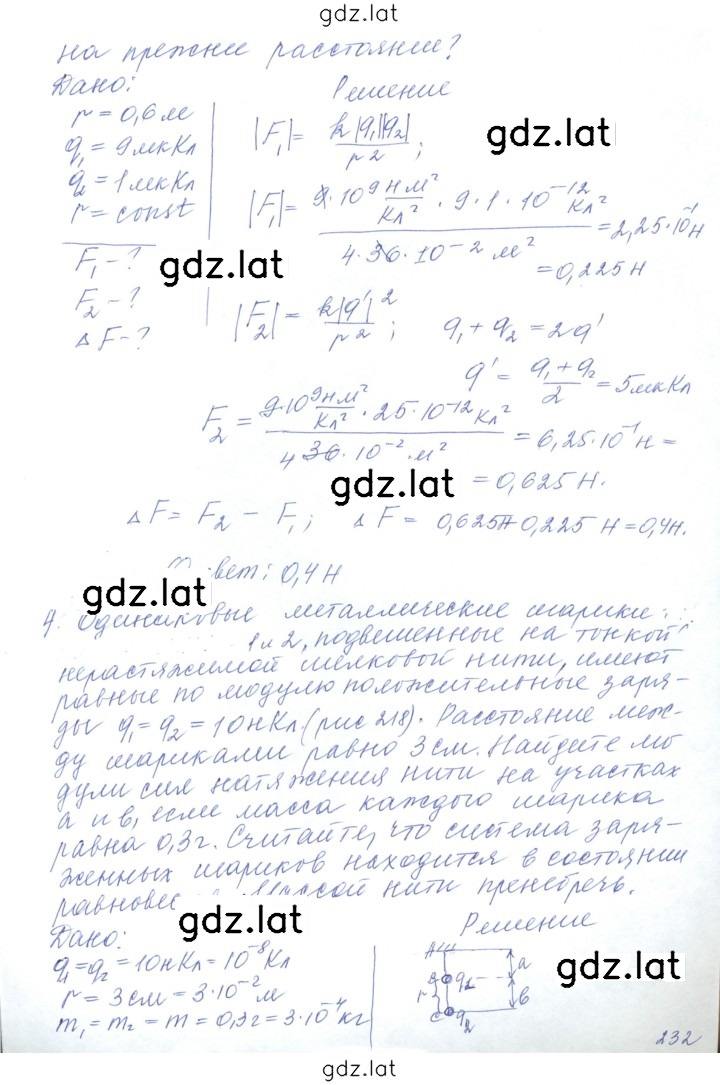 gdz.lat
на прежнее расстояние?
Дано: Решение
r = 0,6 м
q₁ = 9 мкКл
q₂ = 1 мкКл
r = const
F₁ - ?
F₂ - ?
ΔF - ?
|F₁| = k|q₁||q₂| / r²;
gdz.lat
|F₁| = 9·10⁹ Нм²/Кл² · 9·1·10⁻¹² Кл² / 4·36·10⁻² м² = 2,25·10⁻¹ Н
= 0,225 Н
gdz.lat
|F₂| = k|q'|² / r²; q₁ + q₂ = 2q'
q' = (q₁ + q₂) / 2 = 5 мкКл
F₂ = 9·10⁹ Нм²/Кл² · 25·10⁻¹² Кл² / 4 36·10⁻² м² = 6,25·10⁻¹ Н =
= 0,625 Н.
gdz.lat
ΔF = F₂ - F₁; ΔF = 0,625Н - 0,225 Н = 0,4 Н.
вет: 0,4 Н
gdz.lat
4. Одинаковые металлические шарики
1 и 2, подвешенные на тонкой
нерастяжимой шёлковой нити, имеют
равные по модулю положительные заря-
ды q₁ = q₂ = 10 нКл (рис 218). Расстояние меж-
ду шариками равно 3 см. Найдите мо
дули сил натяжения нити на участках
а и в, если масса каждого шарика
равна 0,3 г. Считайте, что система заря-
женных шариков находится в состоянии
равновес нити пренебречь.
gdz.lat
Дано: Решение
q₁ = q₂ = 10 нКл = 10⁻⁸ Кл
r = 3 см = 3·10⁻² м
m₁ = m₂ = m = 0,3 г = 3·10⁻⁴ кг
a
r
q₂
в
q₂
gdz.lat
232
gdz.lat